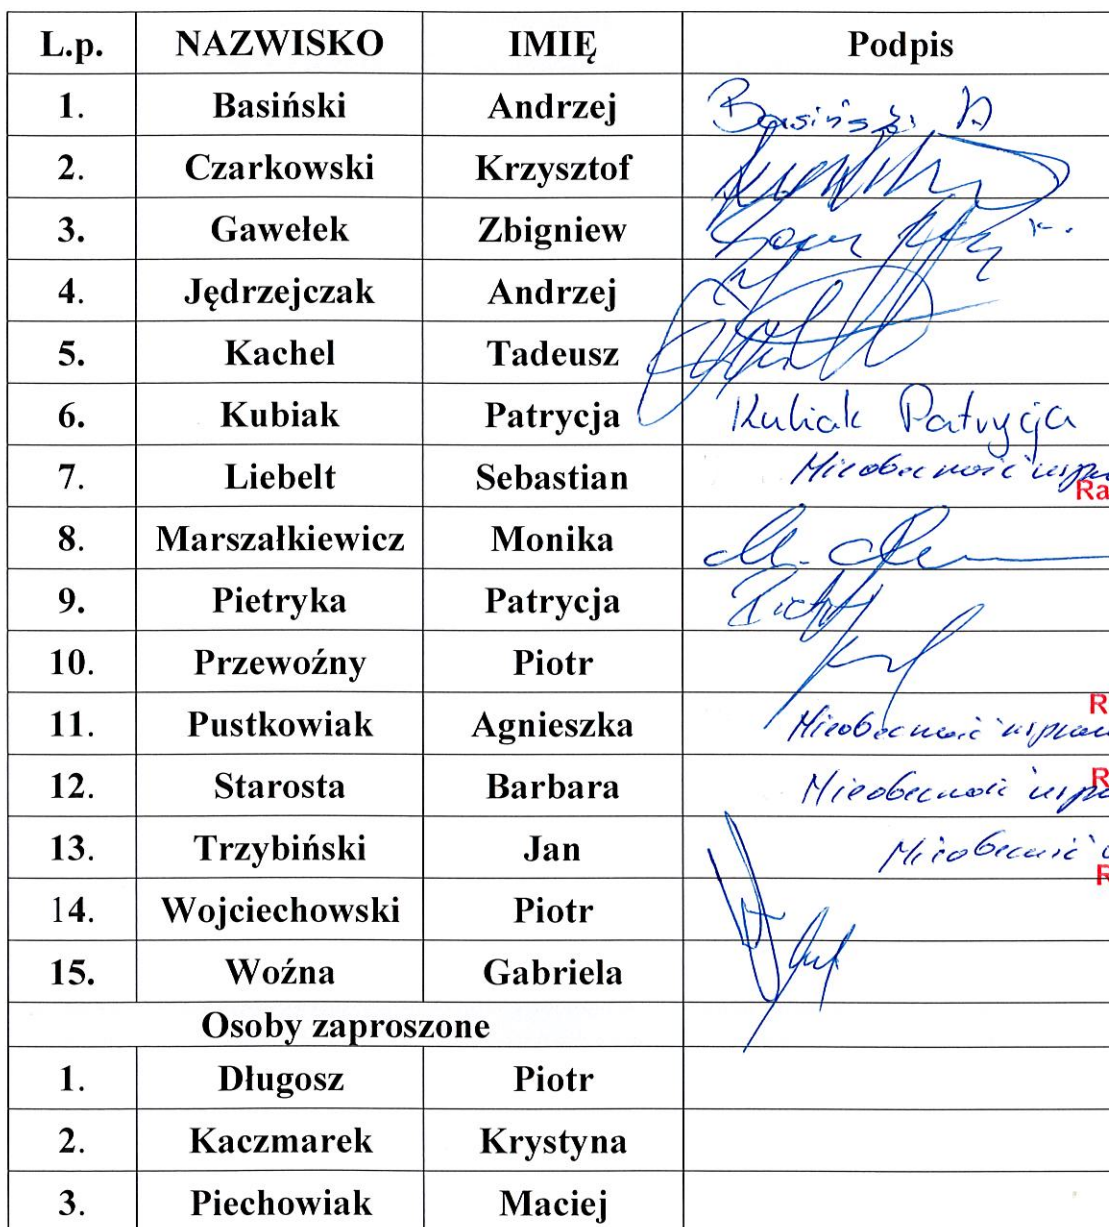 L.p. NAZWISKO IMIĘ Podpis
1. Basiński Andrzej Basiński A
2. Czarkowski Krzysztof
3. Gawełek Zbigniew
4. Jędrzejczak Andrzej
5. Kachel Tadeusz
6. Kubiak Patrycja Kubiak Patrycja
7. Liebelt Sebastian Nieobecność uspr
Ra
8. Marszałkiewicz Monika
9. Pietryka Patrycja
10. Przewoźny Piotr
R
11. Pustkowiak Agnieszka Nieobecność uspraw
R
12. Starosta Barbara Nieobecność uspr
13. Trzybiński Jan Nieobecność u
R
14. Wojciechowski Piotr
15. Woźna Gabriela
Osoby zaproszone
1. Długosz Piotr
2. Kaczmarek Krystyna
3. Piechowiak Maciej